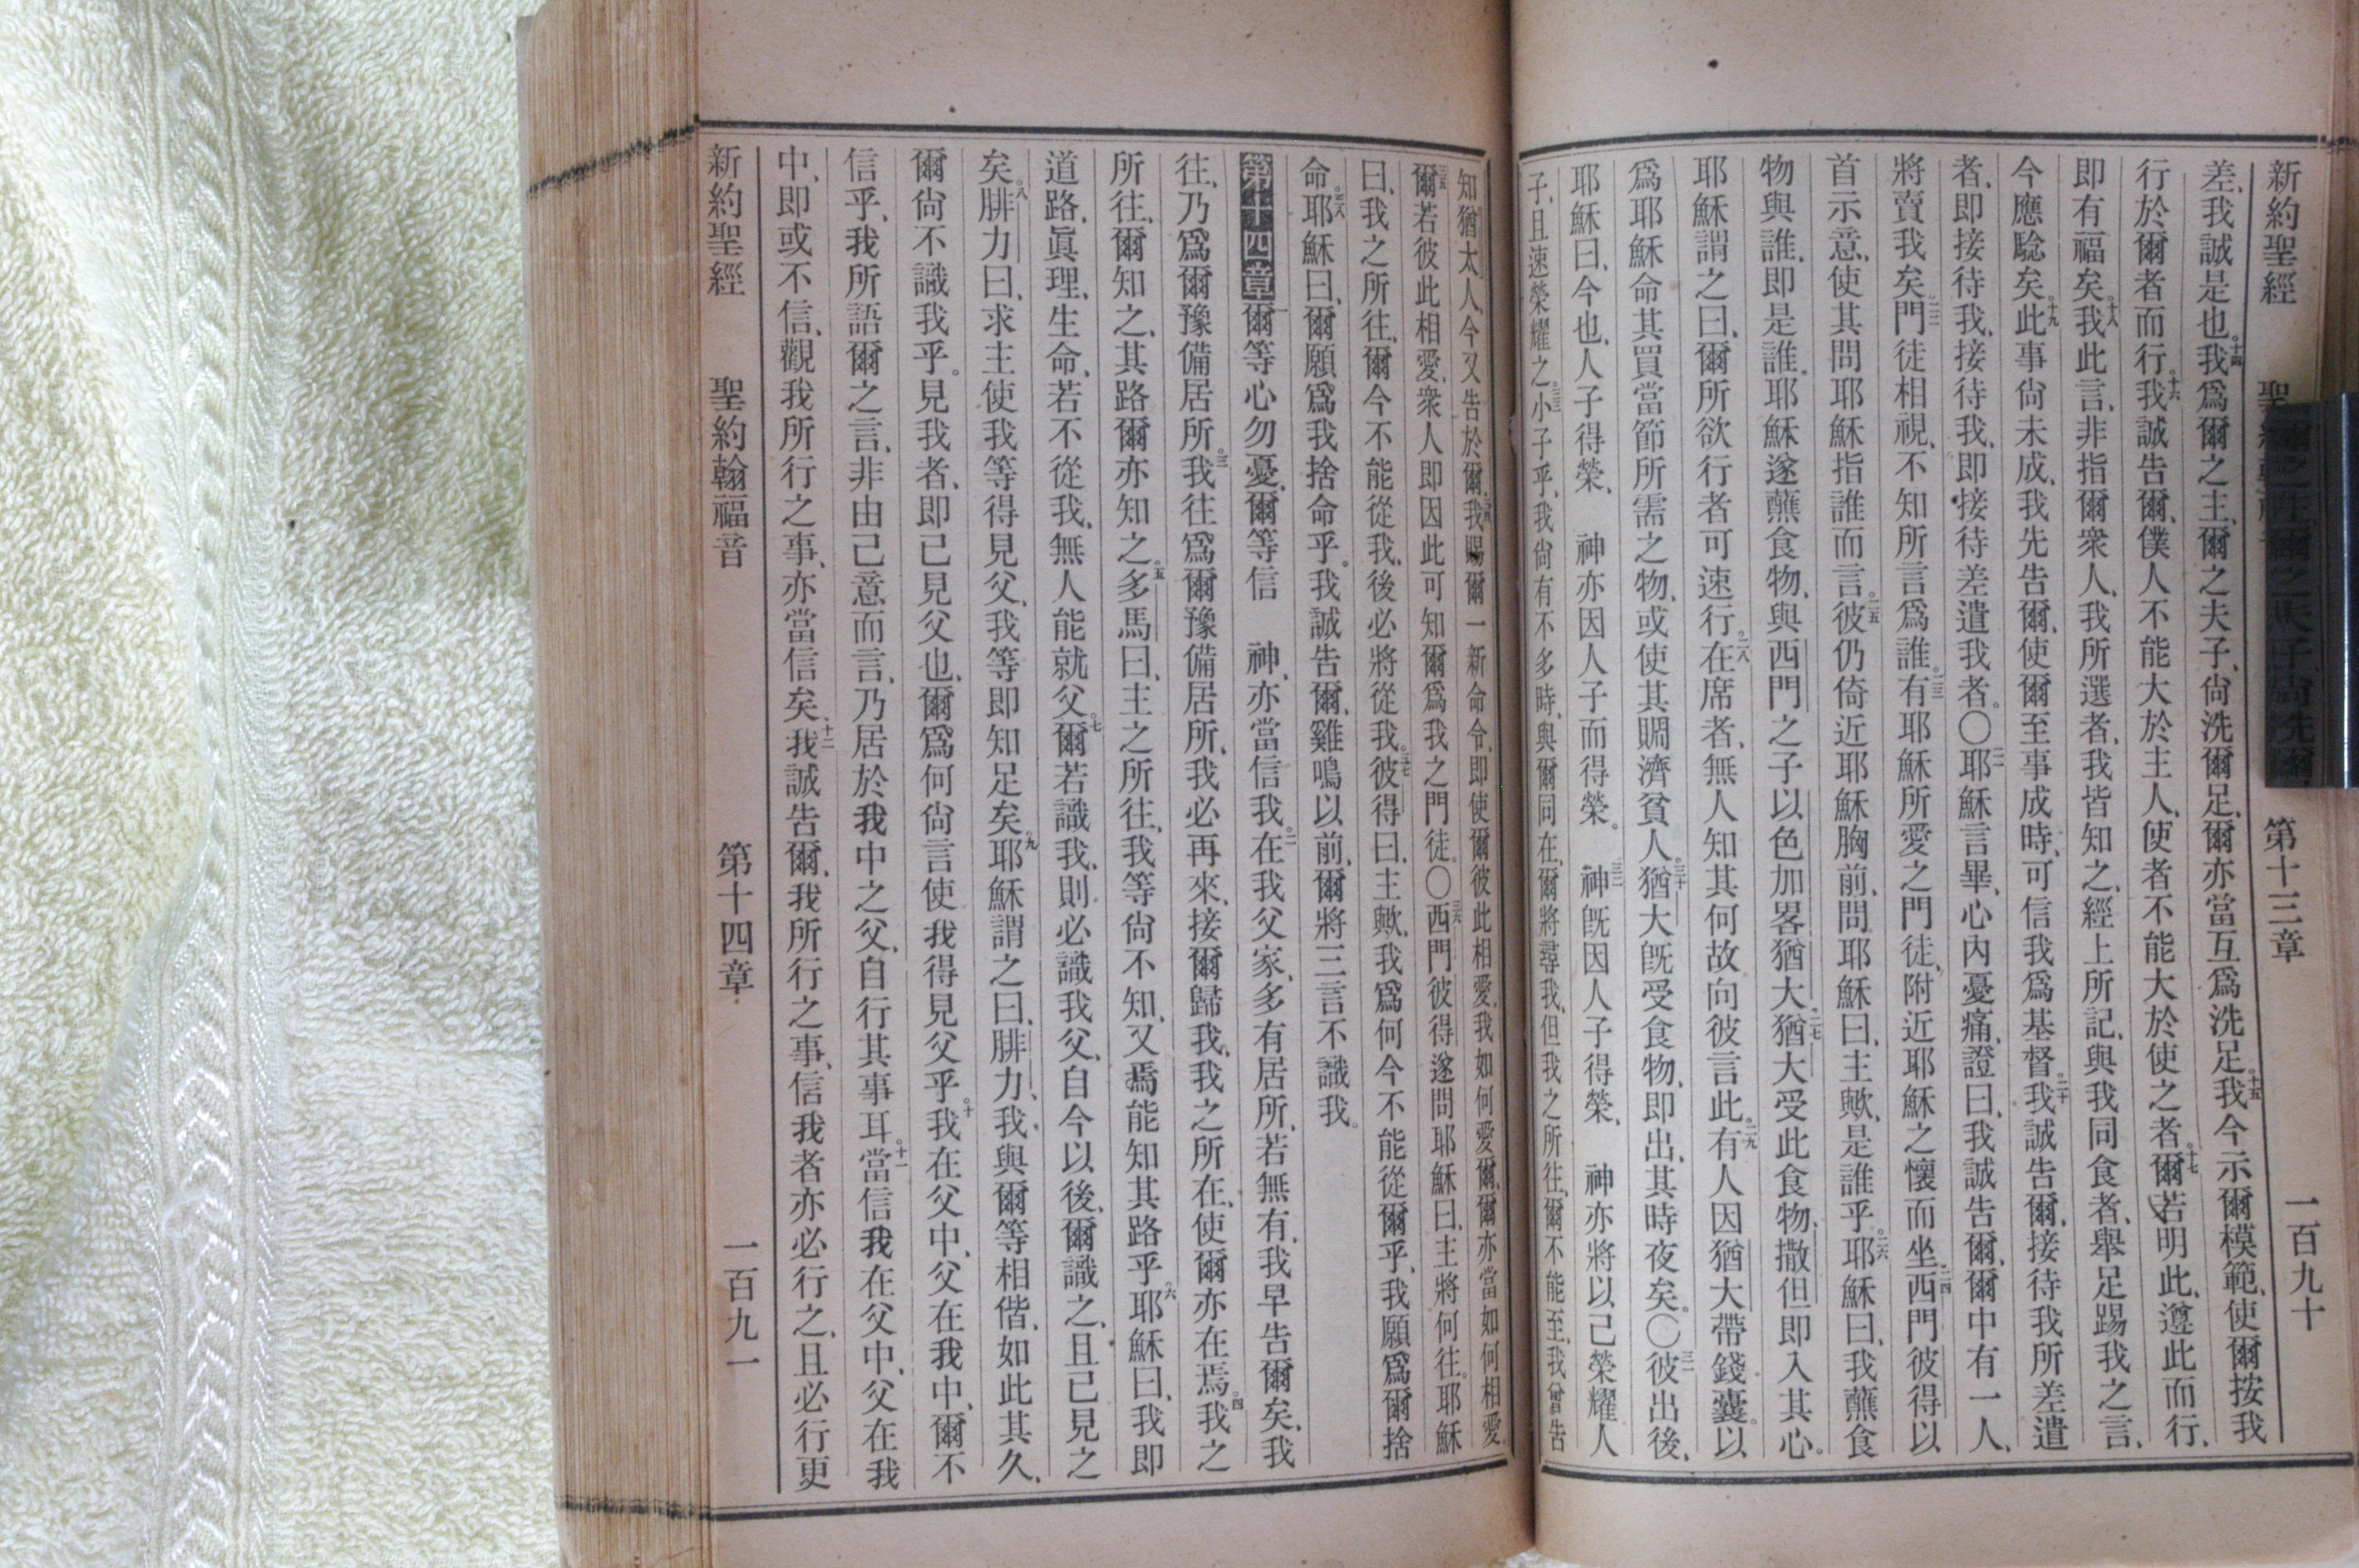 新約聖經 第十三章 一百九十
差、我誠是也。十四我爲爾之主、爾之夫子、尙洗爾足、爾亦當互爲洗足。十五我今示爾模範、使爾按我
行於爾者而行。十六我誠告爾、僕人不能大於主人、使者不能大於使之者。十七爾若明此、遵此而行、
即有福矣。十八我此言、非指爾衆人、我所選者、我皆知之、經上所記、與我同食者、舉足踢我之言、
今應騐矣。十九此事尙未成、我先告爾、使爾至事成時、可信我爲基督。二十我誠告爾、接待我所差遣
者、即接待我、接待我、即接待差遣我者。〇二一耶穌言畢、心內憂痛、證曰、我誠告爾、爾中有一人、
將賣我矣。二二門徒相視、不知所言爲誰。二三有耶穌所愛之門徒、附近耶穌之懷而坐。二四西門彼得以
首示意、使其問耶穌指誰而言。二五彼仍倚近耶穌胸前、問耶穌曰、主歟、是誰乎。二六耶穌曰、我蘸食
物與誰、即是誰。耶穌遂蘸食物、與西門之子以色加畧猶大。二七猶大受此食物、撒但即入其心。
耶穌謂之曰、爾所欲行者可速行。二八在席者、無人知其何故向彼言此。二九有人因猶大帶錢囊。以
爲耶穌命其買當節所需之物、或使其賙濟貧人。三十猶大旣受食物、即出、其時夜矣。〇三一彼出後、
耶穌曰、今也、人子得榮、 神亦因人子而得榮。三二 神旣因人子得榮、 神亦將以己榮耀人
子、且速榮耀之。三三小子乎、我尙有不多時、與爾同在、爾將尋我、但我之所往、爾不能至、我曾告
知猶太人、今又告於爾。三四我賜爾一新命令、即使爾彼此相愛、我如何愛爾、爾亦當如何相愛。
三五爾若彼此相愛、衆人即因此可知爾爲我之門徒。〇三六西門彼得遂問耶穌曰、主將何往。耶穌
曰、我之所往、爾今不能從我、後必將從我。三七彼得曰、主歟、我爲何今不能從爾乎、我願爲爾捨
命。三八耶穌曰、爾願爲我捨命乎。我誠告爾、雞鳴以前、爾將三言不識我。
第十四章 一爾等心勿憂、爾等信 神、亦當信我。二在我父家、多有居所、若無有、我早告爾矣、我
往、乃爲爾豫備居所。三我往爲爾豫備居所、我必再來、接爾歸我、我之所在、使爾亦在焉。四我之
所往、爾知之、其路爾亦知之。五多馬曰、主之所往、我等尙不知、又焉能知其路乎。六耶穌曰、我即
道路、眞理、生命、若不從我、無人能就父。七爾若識我、則必識我父、自今以後、爾識之、且已見之
矣。八腓力曰、求主使我等得見父、我等即知足矣。九耶穌謂之曰、腓力、我與爾等相偕、如此其久、
爾尙不識我乎。見我者、即已見父也、爾爲何尙言使我得見父乎。十我在父中、父在我中、爾不
信乎、我所語爾之言、非由己意而言、乃居於我中之父、自行其事耳。十一當信我在父中、父在我
中、即或不信、觀我所行之事、亦當信矣。十二我誠告爾、我所行之事、信我者亦必行之、且必行更
新約聖經 聖約翰福音 第十四章 一百九一